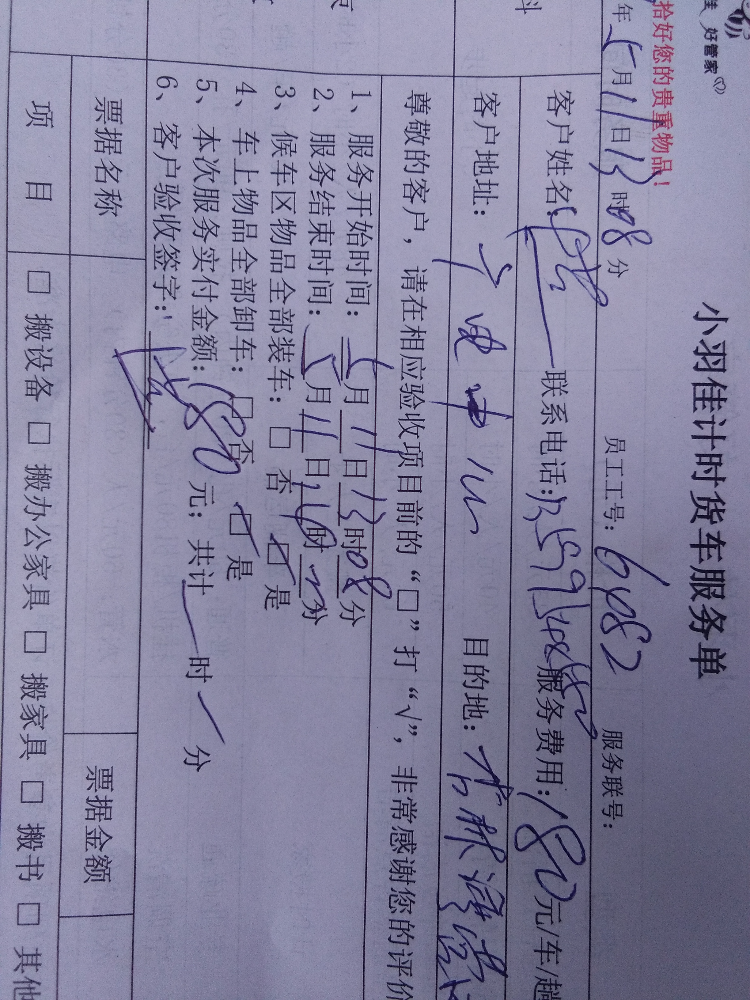 好管家
拾好您的贵重物品！
小羽佳计时货车服务单
年5月11日13时08分 员工工号：6082 服务联号：
客户姓名： 联系电话： 服务费用：180元/车/趟
客户地址： 目的地：
尊敬的客户，请在相应验收项目前的“□”打“√”，非常感谢您的评价
1、服务开始时间：5月11日13时08分
2、服务结束时间：5月11日 时 分
3、候车区物品全部装车：□ 否 ☑ 是
4、车上物品全部卸车：□ 否 ☑ 是
5、本次服务实付金额：180元；共计 时 分
6、客户验收签字：
票据名称 票据金额
项 目 □ 搬设备 □ 搬办公家具 □ 搬家具 □ 搬书 □ 其他